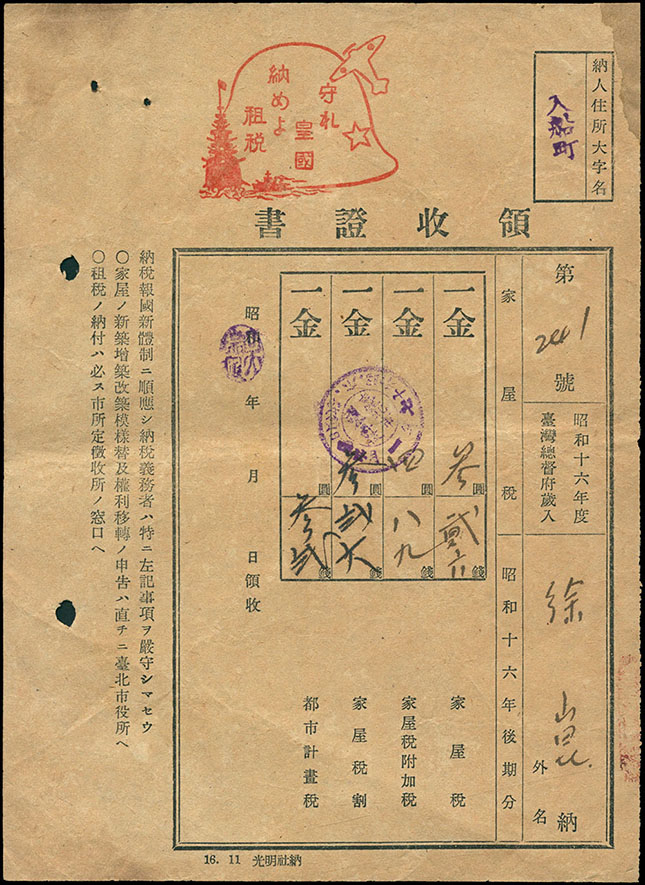 守れ
皇國
納めよ
租税
納人住所大字名
入船町
領收證書
第 2441 號
昭和十六年度
臺灣總督府歲入
徐
外 名
納
家屋稅
昭和十六年後期分
一金 参圓 貳六錢 家屋稅
一金 四圓 八九錢 家屋稅附加稅
一金 参圓 弐六錢 家屋稅割
一金 圓 錢 都市計畫稅
昭和 年 月 日領收
納稅報國新體制ニ順應シ納稅義務者ハ特ニ左記事項ヲ嚴守シマセウ
○家屋ノ新築增築改築模樣替及權利移轉ノ申告ハ直チニ臺北市役所ヘ
○租稅ノ納付ハ必ス市所定徵收所ノ窓口ヘ
16. 11 光明社納